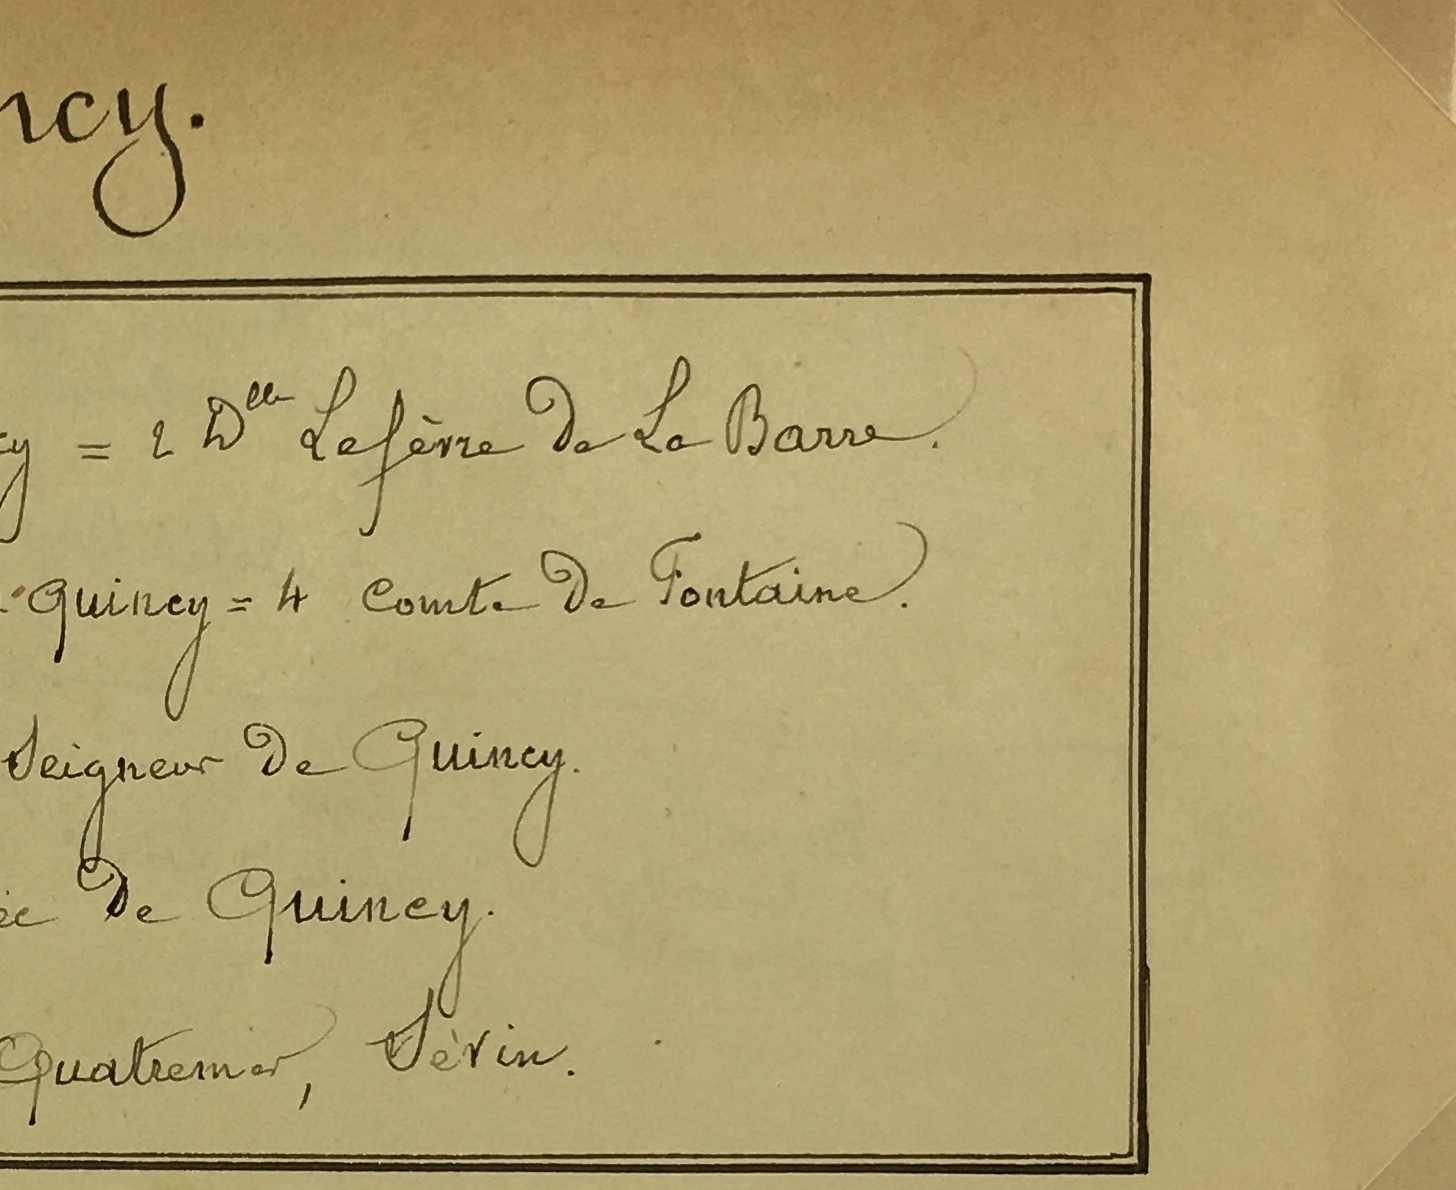 ncy.
cy = 2 Dlle Lefèvre de La Barre.
Quincy = 4 Comte de Fontaine.
Seigneur de Quincy.
ée de Quincy.
Quatremer, Sévin.